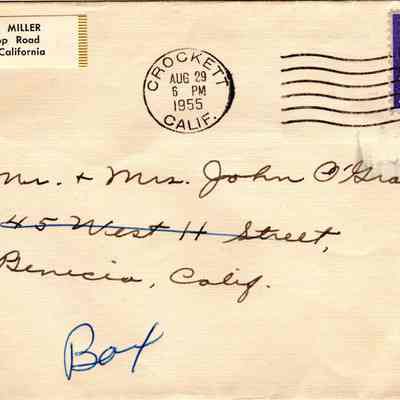 MILLER
op Road
California
CROCKETT
AUG 29
6 PM
1955
CALIF.
Mr. + Mrs. John O'Gra
45 West H Street,
Benicia, Calif.
Box